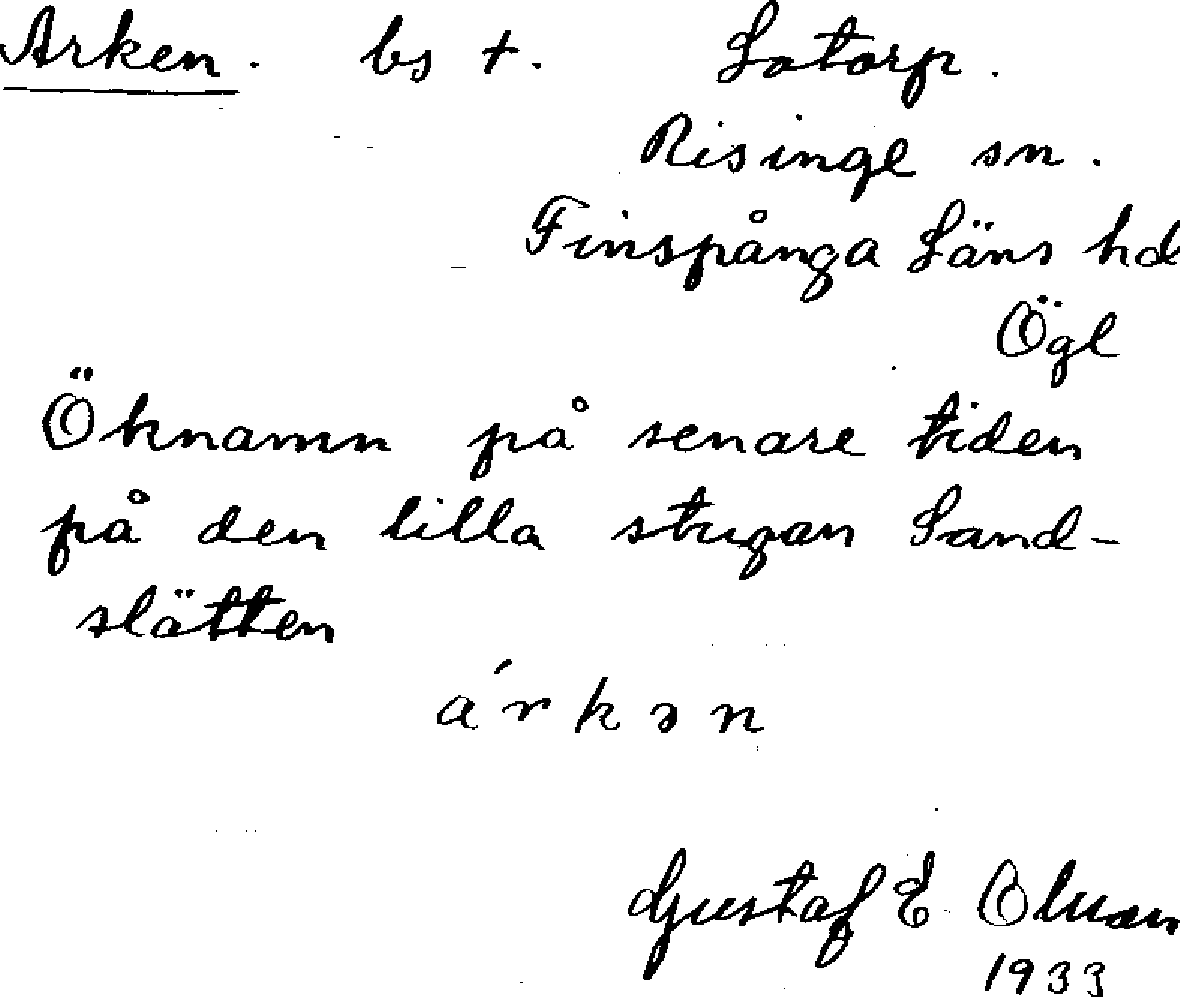 Arken. bs +. Lotorp.
Risinge sn.
Finspånga Läns hd
Ögl
Öknamn på senare tiden
på den lilla stugan Sand-
slätten
árkən
Gustaf E
1933